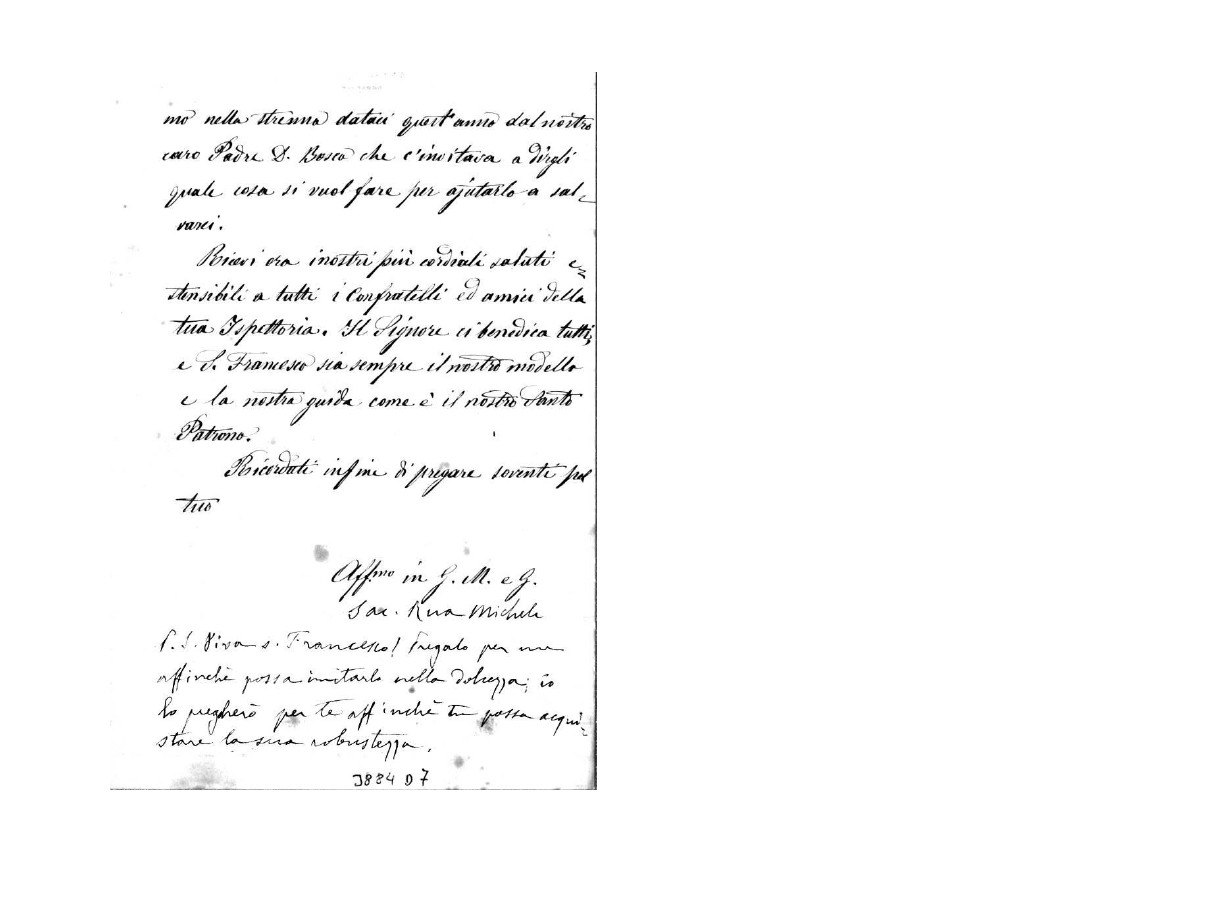 mo nella strenna dataci quest'anno dal nostro
caro Padre D. Bosco che c'invitava a dirgli
quale cosa si vuol fare per ajutarlo a sal-
varci.
Ricevi ora i nostri più cordiali saluti e-
stensibili a tutti i Confratelli ed amici della
tua Ispettoria. Il Signore ci benedica tutti,
e S. Francesco sia sempre il nostro modello
e la nostra guida come è il nostro Santo
Patrono.
Ricordati infine di pregare sovente pel
tuo
Aff.mo in G. M. e G.
Sac. Rua Michele
P.S. Viva s. Francesco! Pregalo per me
affinchè possa imitarlo nella dolcezza; io
lo pregherò per te affinchè tu possa acqui-
stare la sua robustezza.
3884 D 7